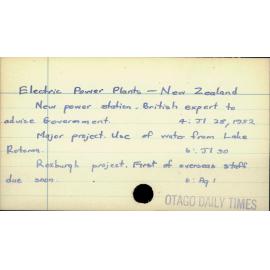 Electric Power Plants — New Zealand
New power station. British expert to
advise Government. 4: Jl 28, 1952
Major project. Use of water from Lake
Rotorua. 6: Jl 30
Roxburgh project. First of overseas staff
due soon. 6: Ag 1
OTAGO DAILY TIMES